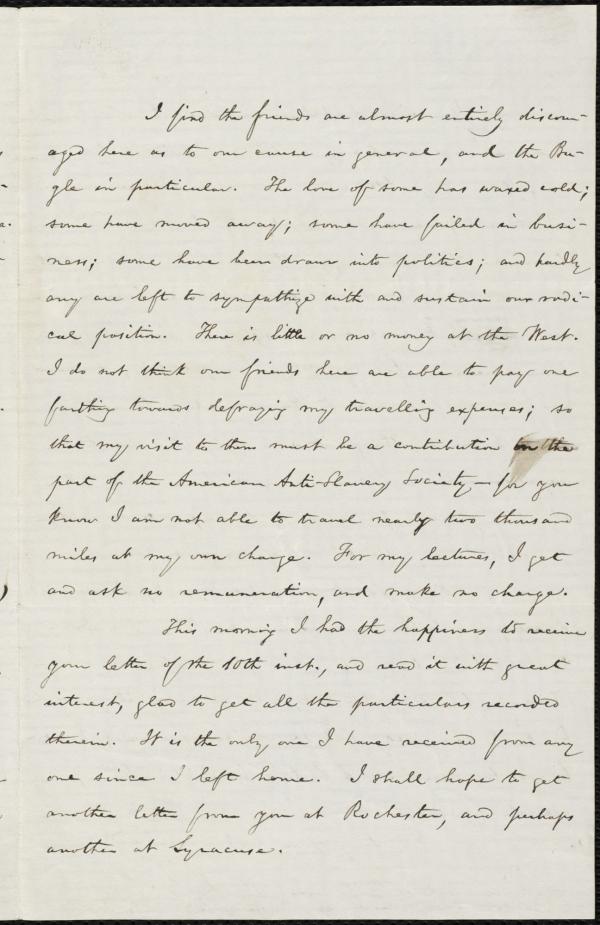 I find the friends are almost entirely discour-
aged here as to our cause in general, and the Bu-
gle in particular. The love of some has waxed cold;
some have moved away; some have failed in busi-
ness; some have been drawn into politics; and hardly
any are left to sympathize with and sustain our radi-
cal position. There is little or no money at the West.
I do not think our friends here are able to pay one
farthing towards defraying my travelling expenses; so
that my visit to them must be a contribution on the
part of the American Anti-Slavery Society—for you
know I am not able to travel nearly two thousand
miles at my own charge. For my lectures, I get
and ask no remuneration, and make no charge.
This morning I had the happiness to receive
your letter of the 10th inst., and read it with great
interest, glad to get all the particulars recorded
therein. It is the only one I have received from any
one since I left home. I shall hope to get
another letter from you at Rochester, and perhaps
another at Syracuse.